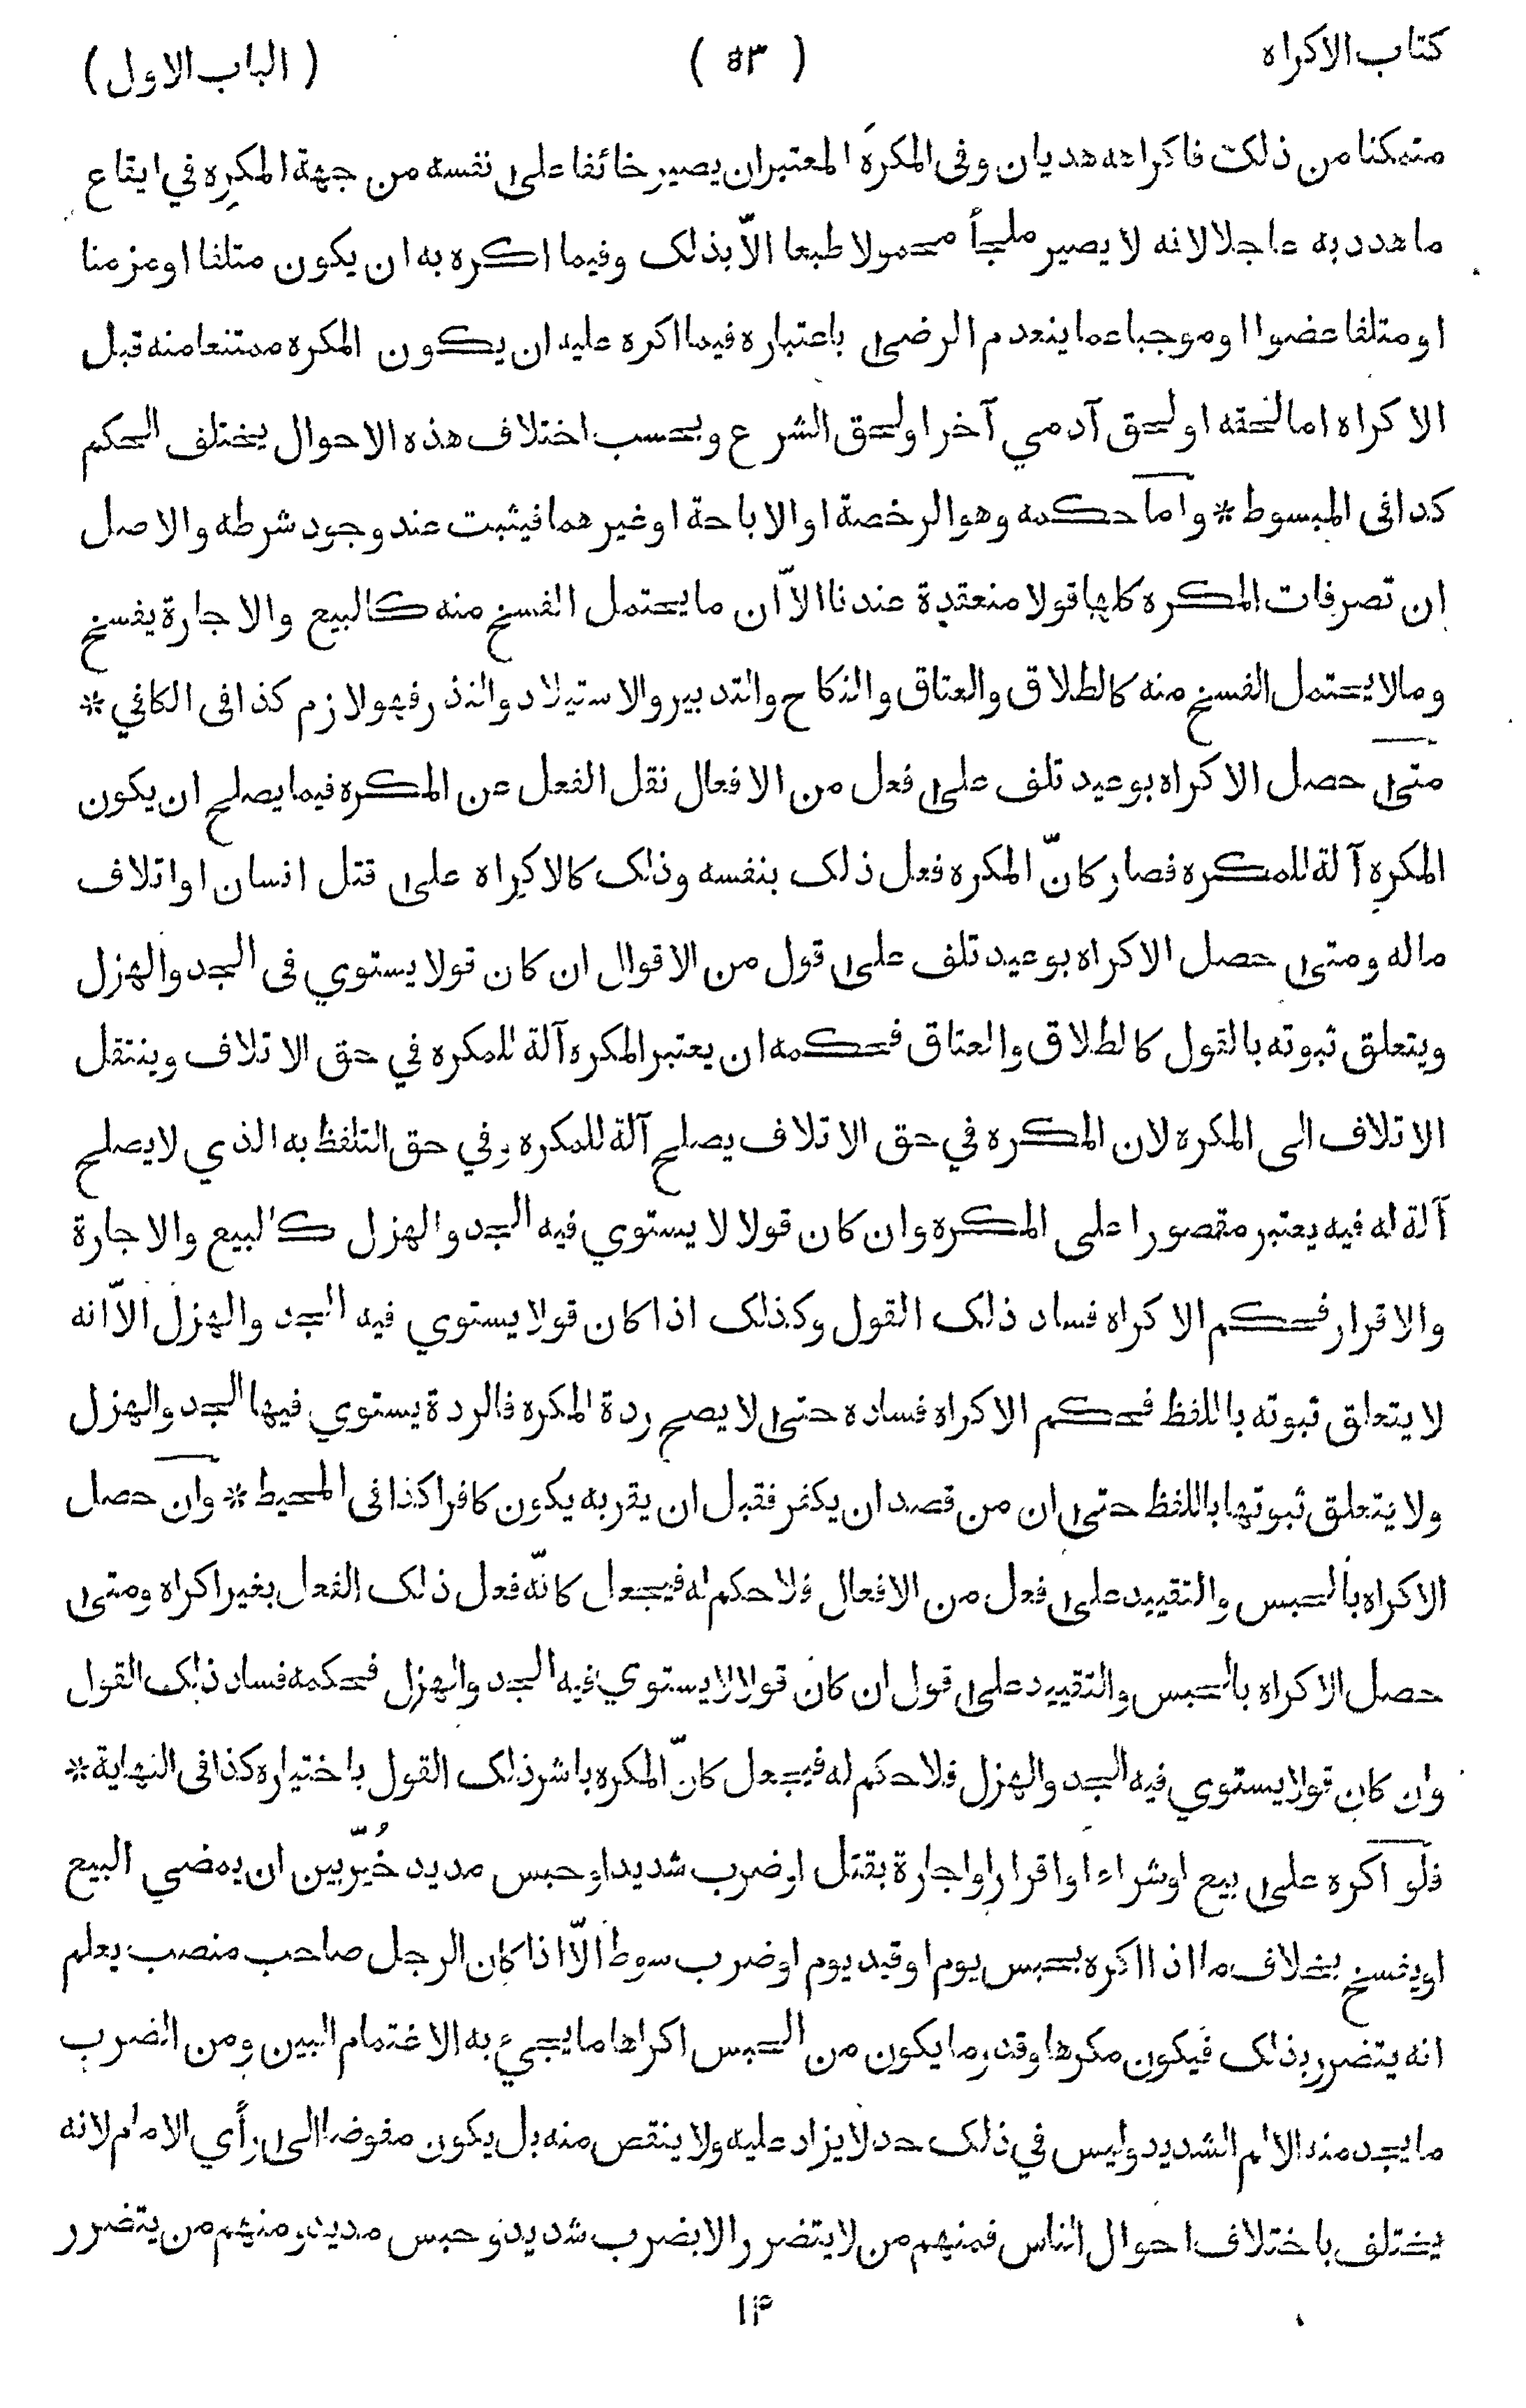 كتاب الاكراه ( ٥٣ ) ( الباب الاول )
متمكنا من ذلك فاكراهه هذيان وفى المكرَه المعتبر ان يصير خائفا على نفسه من جهة المكرِه في ايقاع
ما هدد به عاجلا لانه لا يصير ملجأ محمولا طبعا الّا بذلك وفيما اكره به ان يكون متلفا او مزمنا
او متلفا عضوا او موجبا عما ينعدم الرضى باعتباره فيما اكره عليه ان يكون المكره ممتنعا منه قبل
الاكراه اما لحقه او لحق آدمي آخر او لحق الشرع وبحسب اختلاف هذه الاحوال يختلف الحكم
كذا فى المبسوط * واما حكمه وهو الرخصة او الاباحة او غيرهما فيثبت عند وجود شرطه والاصل
ان تصرفات المكره كلها قولا منعقدة عندنا الّا أن ما يحتمل الفسخ منه كالبيع والاجارة يفسخ
وما لا يحتمل الفسخ منه كالطلاق والعتاق والنكاح والتدبير والاستيلاد والنذر فهو لازم كذا فى الكافي *
متى حصل الاكراه بوعيد تلف على فعل من الافعال نقل الفعل عن المكره فيما يصلح ان يكون
المكره آلة للمكره فصار كانّ المكره فعل ذلك بنفسه وذلك كالاكراه على قتل انسان او اتلاف
ماله ومتى حصل الاكراه بوعيد تلف على قول من الاقوال ان كان قولا يستوي فى الجد والهزل
ويتعلق ثبوته بالقول كالطلاق والعتاق فحكمه ان يعتبر المكره آلة للمكره في حق الاتلاف وينتقل
الاتلاف الى المكره لان المكره في حق الاتلاف يصلح آلة للمكره وفي حق التلفظ به الذي لا يصلح
آلة له فيه يعتبر مقصورا على المكره وان كان قولا لا يستوي فيه الجد والهزل كالبيع والاجارة
والاقرار فحكم الاكراه فساد ذلك القول وكذلك اذا كان قولا يستوي فيه الجد والهزل الّا انه
لا يتعلق ثبوته باللفظ فحكم الاكراه فساده حتى لا يصح ردة المكره فالردة يستوي فيها الجد والهزل
ولا يتعلق ثبوتها باللفظ حتى ان من قصد ان يكفر فقبل ان يقر به يكون كافرا كذا فى المحيط * وان حصل
الاكراه بالحبس والتقييد على فعل من الافعال فلا حكم له فيجعل كانّه فعل ذلك الفعل بغير اكراه ومتى
حصل الاكراه بالحبس والتقييد على قول ان كان قولا لا يستوي فيه الجد والهزل فحكمه فساد ذلك القول
وان كان قولا يستوي فيه الجد والهزل فلا حكم له فيجعل كانّ المكره باشر ذلك القول باختياره كذا فى النهاية *
فلو اكره على بيع او شراء او اقرار او اجارة بقتل او ضرب شديد او حبس مديد خُيّر بين ان يمضي البيع
او يفسخ بخلاف ما اذا اكره بحبس يوم او قيد يوم او ضرب سوط الّا اذا كان الرجل صاحب منصب يعلم
انه يتضرر بذلك فيكون مكرها وقدر ما يكون من الحبس اكراها ما يجيء به الاغتمام البين ومن الضرب
ما يجد منه الالم الشديد وليس في ذلك حد لا يزاد عليه ولا ينقص منه بل يكون مفوضا الى رأي الامام لانه
يختلف باختلاف احوال الناس فمنهم من لا يتضرر الا بضرب شديد وحبس مديد ومنهم من يتضرر
١٤